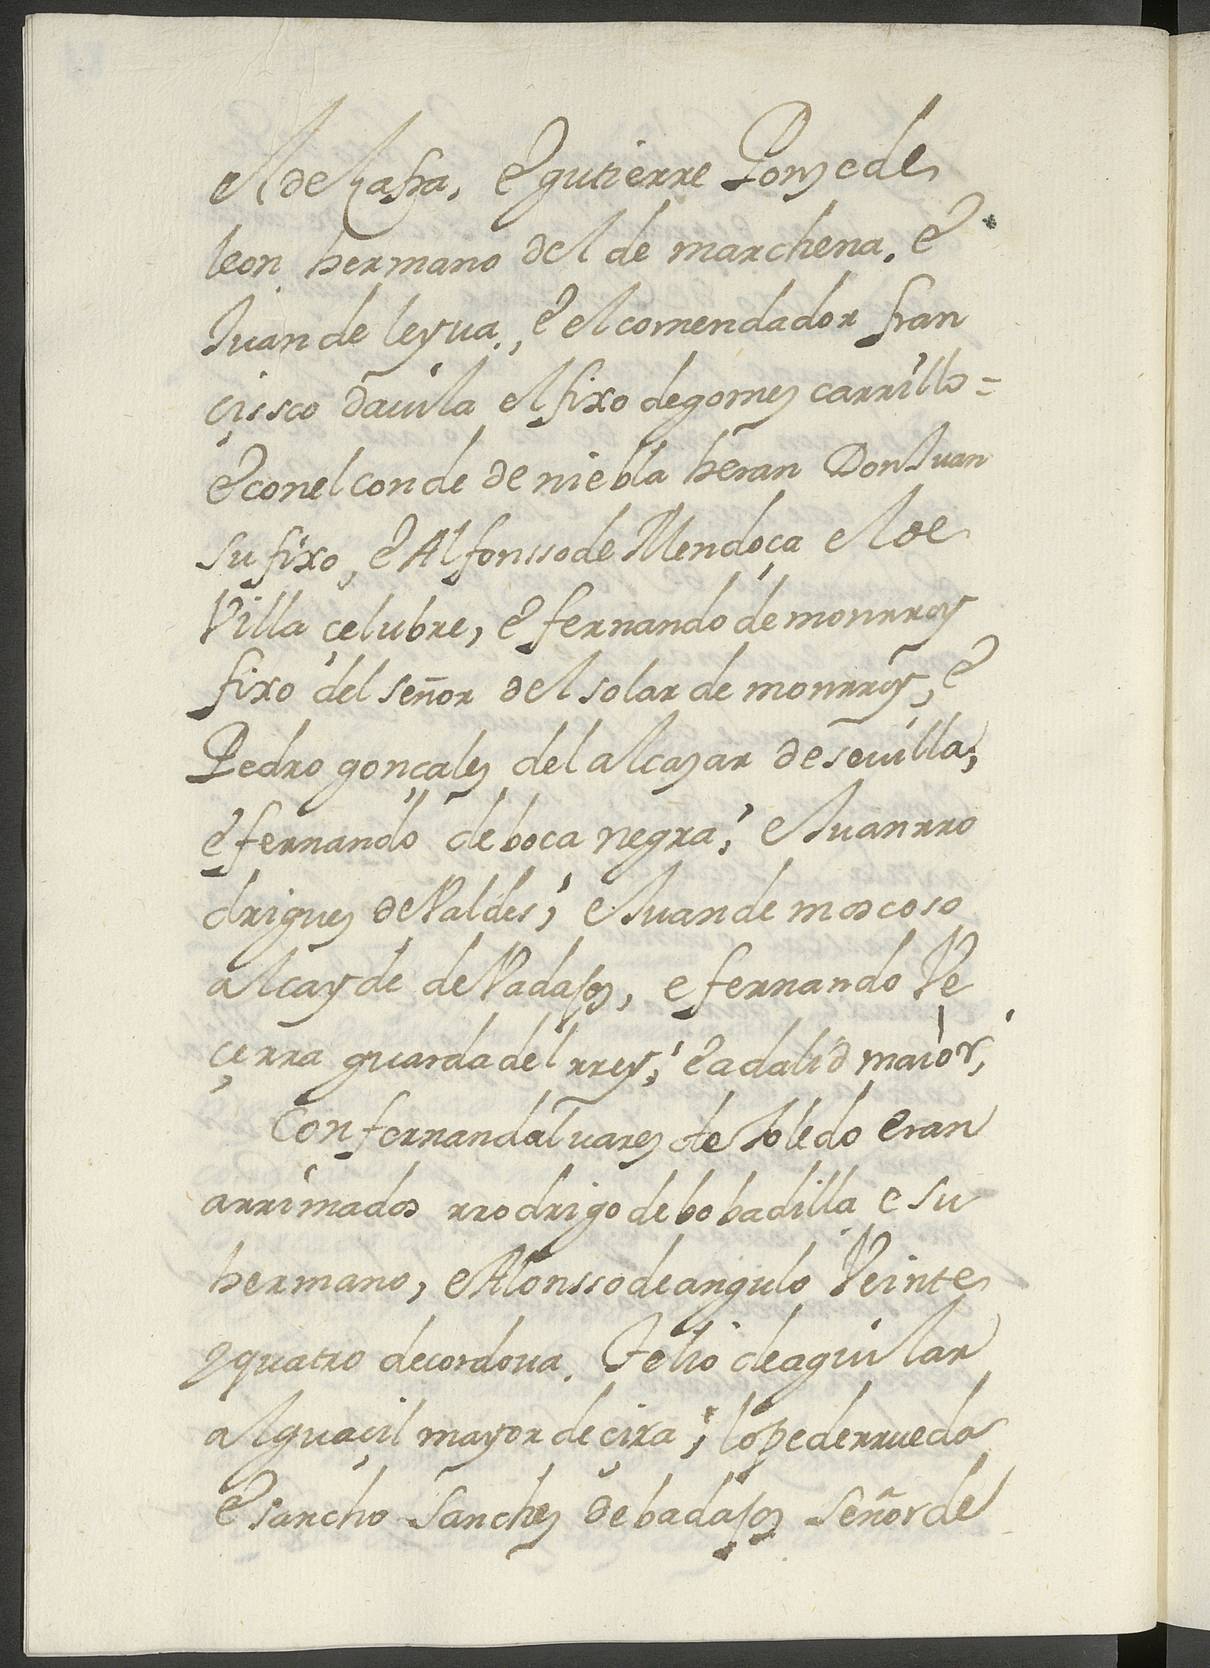 el de Çafra, e gutierre Ponze de
leon hermano del de marchena. e
Juan de leyua, e el comendador fran
çissco dauila el fixo de gomez carrillo =
e con el conde de niebla heran Don Juan
su fixo, e Alfonsso de Mendoça el de
Villa çelubre, e fernando de monrroy
fixo del señor del solar de monrroy, e
Pedro gonçalez del alcazar de seuilla;
e fernando de boca negra; e Juan rro
driguez de Valdes; e Juan de moscoso
alcayde de Vadajoz, e fernando Ve
çerra guarda del rrey; e adalid maior,
Con fernandaluarez de toledo eran
arrimados rrodrigo de bobadilla e su
hermano, e Alonsso de angulo Veinte
y quatro de cordoua. Tello de aguilar
alguaçil mayor de eçixa; lope de rrueda
e sancho sanchez de badajoz señor de